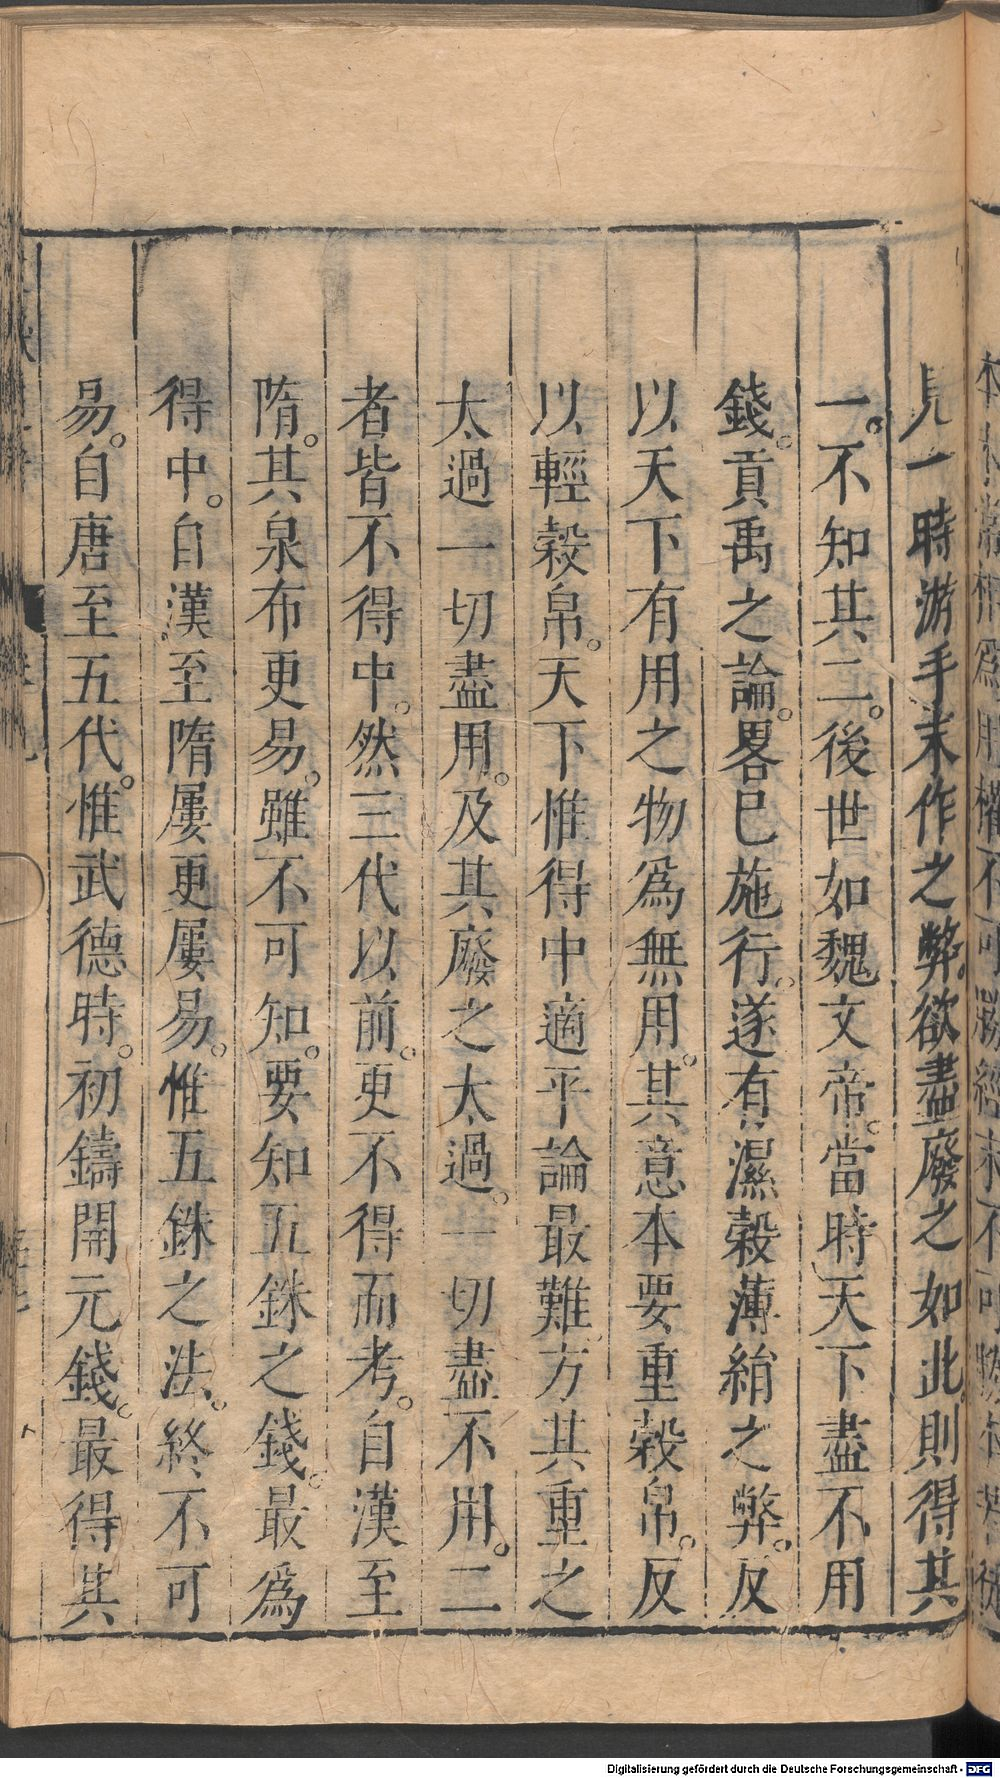 見一時游手末作之弊。欲盡廢之如此。則得其
一。不知其二。後世如魏文帝。當時天下盡不用
錢。貢禹之論。畧已施行。遂有濕榖薄絹之弊。反
以天下有用之物爲無用。其意本要重榖帛。反
以輕榖帛。天下惟得中適平論最難方其重之
太過一切盡用。及其廢之太過。一切盡不用。二
者皆不得中。然三代以前。更不得而考。自漢至
隋。其泉布更易。雖不可知。要知五銖之錢。最爲
得中。自漢至隋屢更屢易。惟五銖之法。終不可
易。自唐至五代。惟武德時。初鑄開元錢。最得其
Digitalisierung gefördert durch die Deutsche Forschungsgemeinschaft - DFG